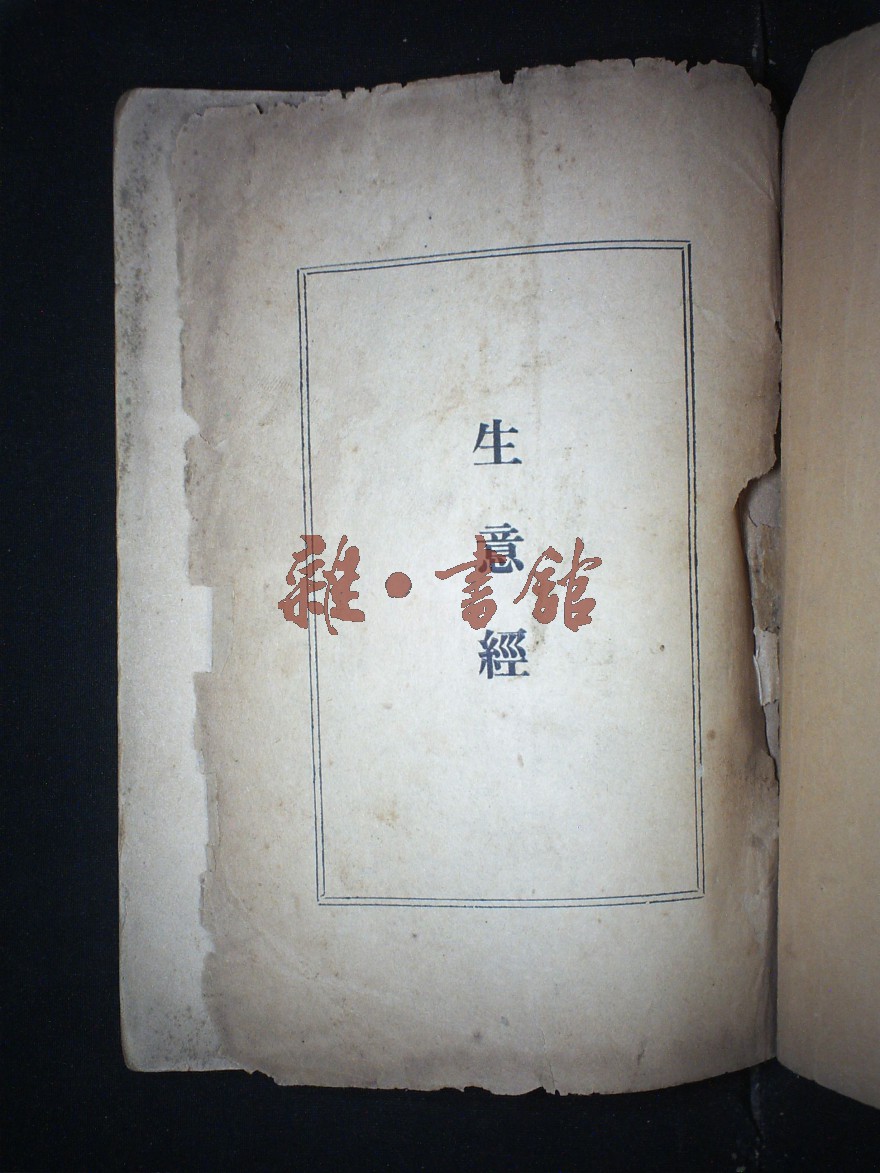 生意經
雜·書館